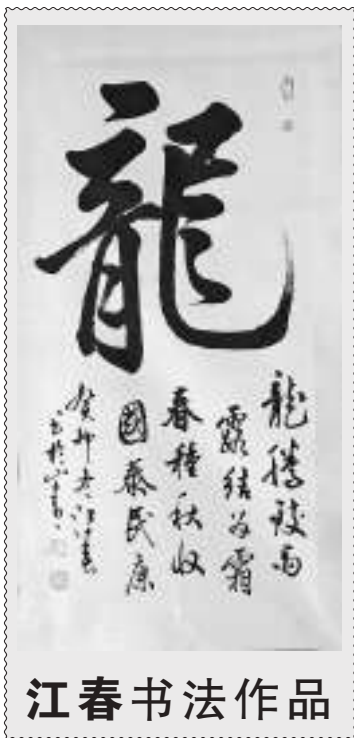 龍
龍騰致雨
露结为霜
春種秋收
國泰民康
癸卯冬江春
江春书法作品